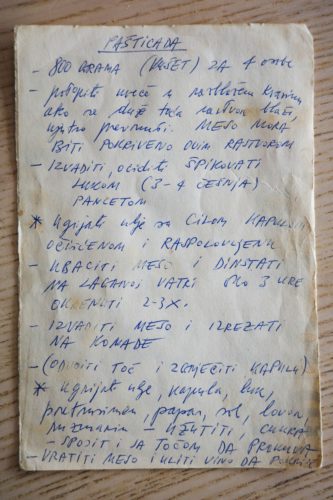 PAŠTICADA
- 800 GRAMA (         ) ZA 4 osobe
- potopiti uveče u razblaženu kvasinu
ako se služi             rastvor blaži,
ujutro prevrnuti. MESO MORA
BITI POKRIVENO OVIM RASTVOROM
- IZVADITI, ocediti ŠPIKOVATI
LUKOM (3-4 ČEŠNJA)
PANCETOM
* Ugrijati ulje sa CILOM KAPULOM
OČIŠĆENOM I RASPOLOVLJENU
- UBACITI MESO I DINSTATI
NA LAGANOJ VATRI oko 3 URE
OKRENUTI 2-3X.
- IZVADITI MESO I IZREZATI
NA KOMADE
- (ODVOJITI TOČ I ZGNJEČITI KAPULU)
* Ugrijati ulje, kapula, luk,
petrusimen, papar, sol, lovor,
ruzmarin - UŽUTITI, CUKRA
- SPOJIT I SA TOČOM DA PROKUVA
- VRATITI MESO I ULITI VINO DA